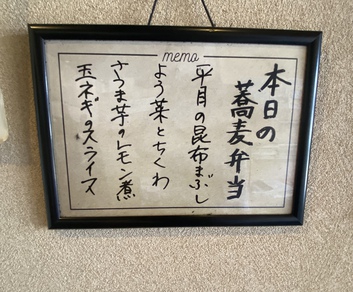 memo
本日の
蕎麦弁当
平目の昆布まぶし
よう菜とちくわ
さつま芋のレモン煮
玉ネギのスライス